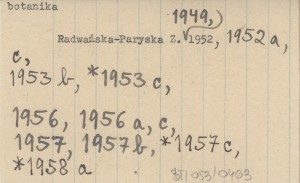 botanika
1949,)
Radwańska-Paryska Z. √1952, 1952a,
c,
1953 b, *1953 c,
1956, 1956 a, c,
1957, 1957b, *1957c,
*1958 a
BT/053/0403